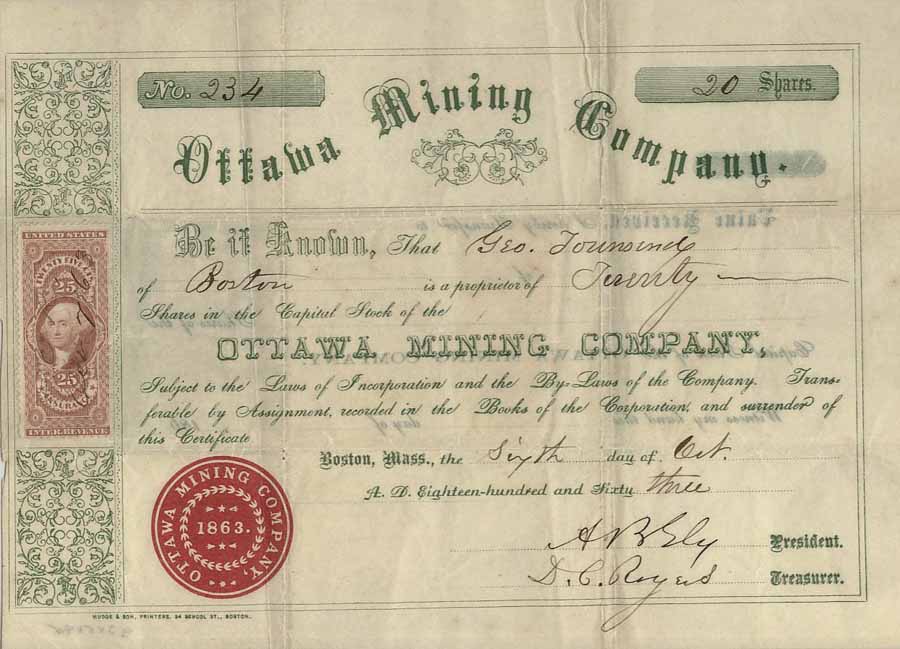 No. 234
20 Shares.
Ottawa Mining Company.
Be it Known, That Geo. Townsend
of Boston is a proprietor of Twenty
Shares in the Capital Stock of the
OTTAWA MINING COMPANY,
Subject to the Laws of Incorporation and the By-Laws of the Company. Trans-
ferable by Assignment, recorded in the Books of the Corporation, and surrender of
this Certificate
Boston, Mass., the Sixth day of Oct.
A. D. Eighteen-hundred and Sixty three
A B Ely President.
D. C. Rogers Treasurer.
UNITED STATES
TWENTY FIVE CTS
25
25
25
INSURANCE
INTER. REVENUE
OTTAWA MINING COMPANY,
1863.
MUDGE & SON, PRINTERS, 34 SCHOOL ST., BOSTON.